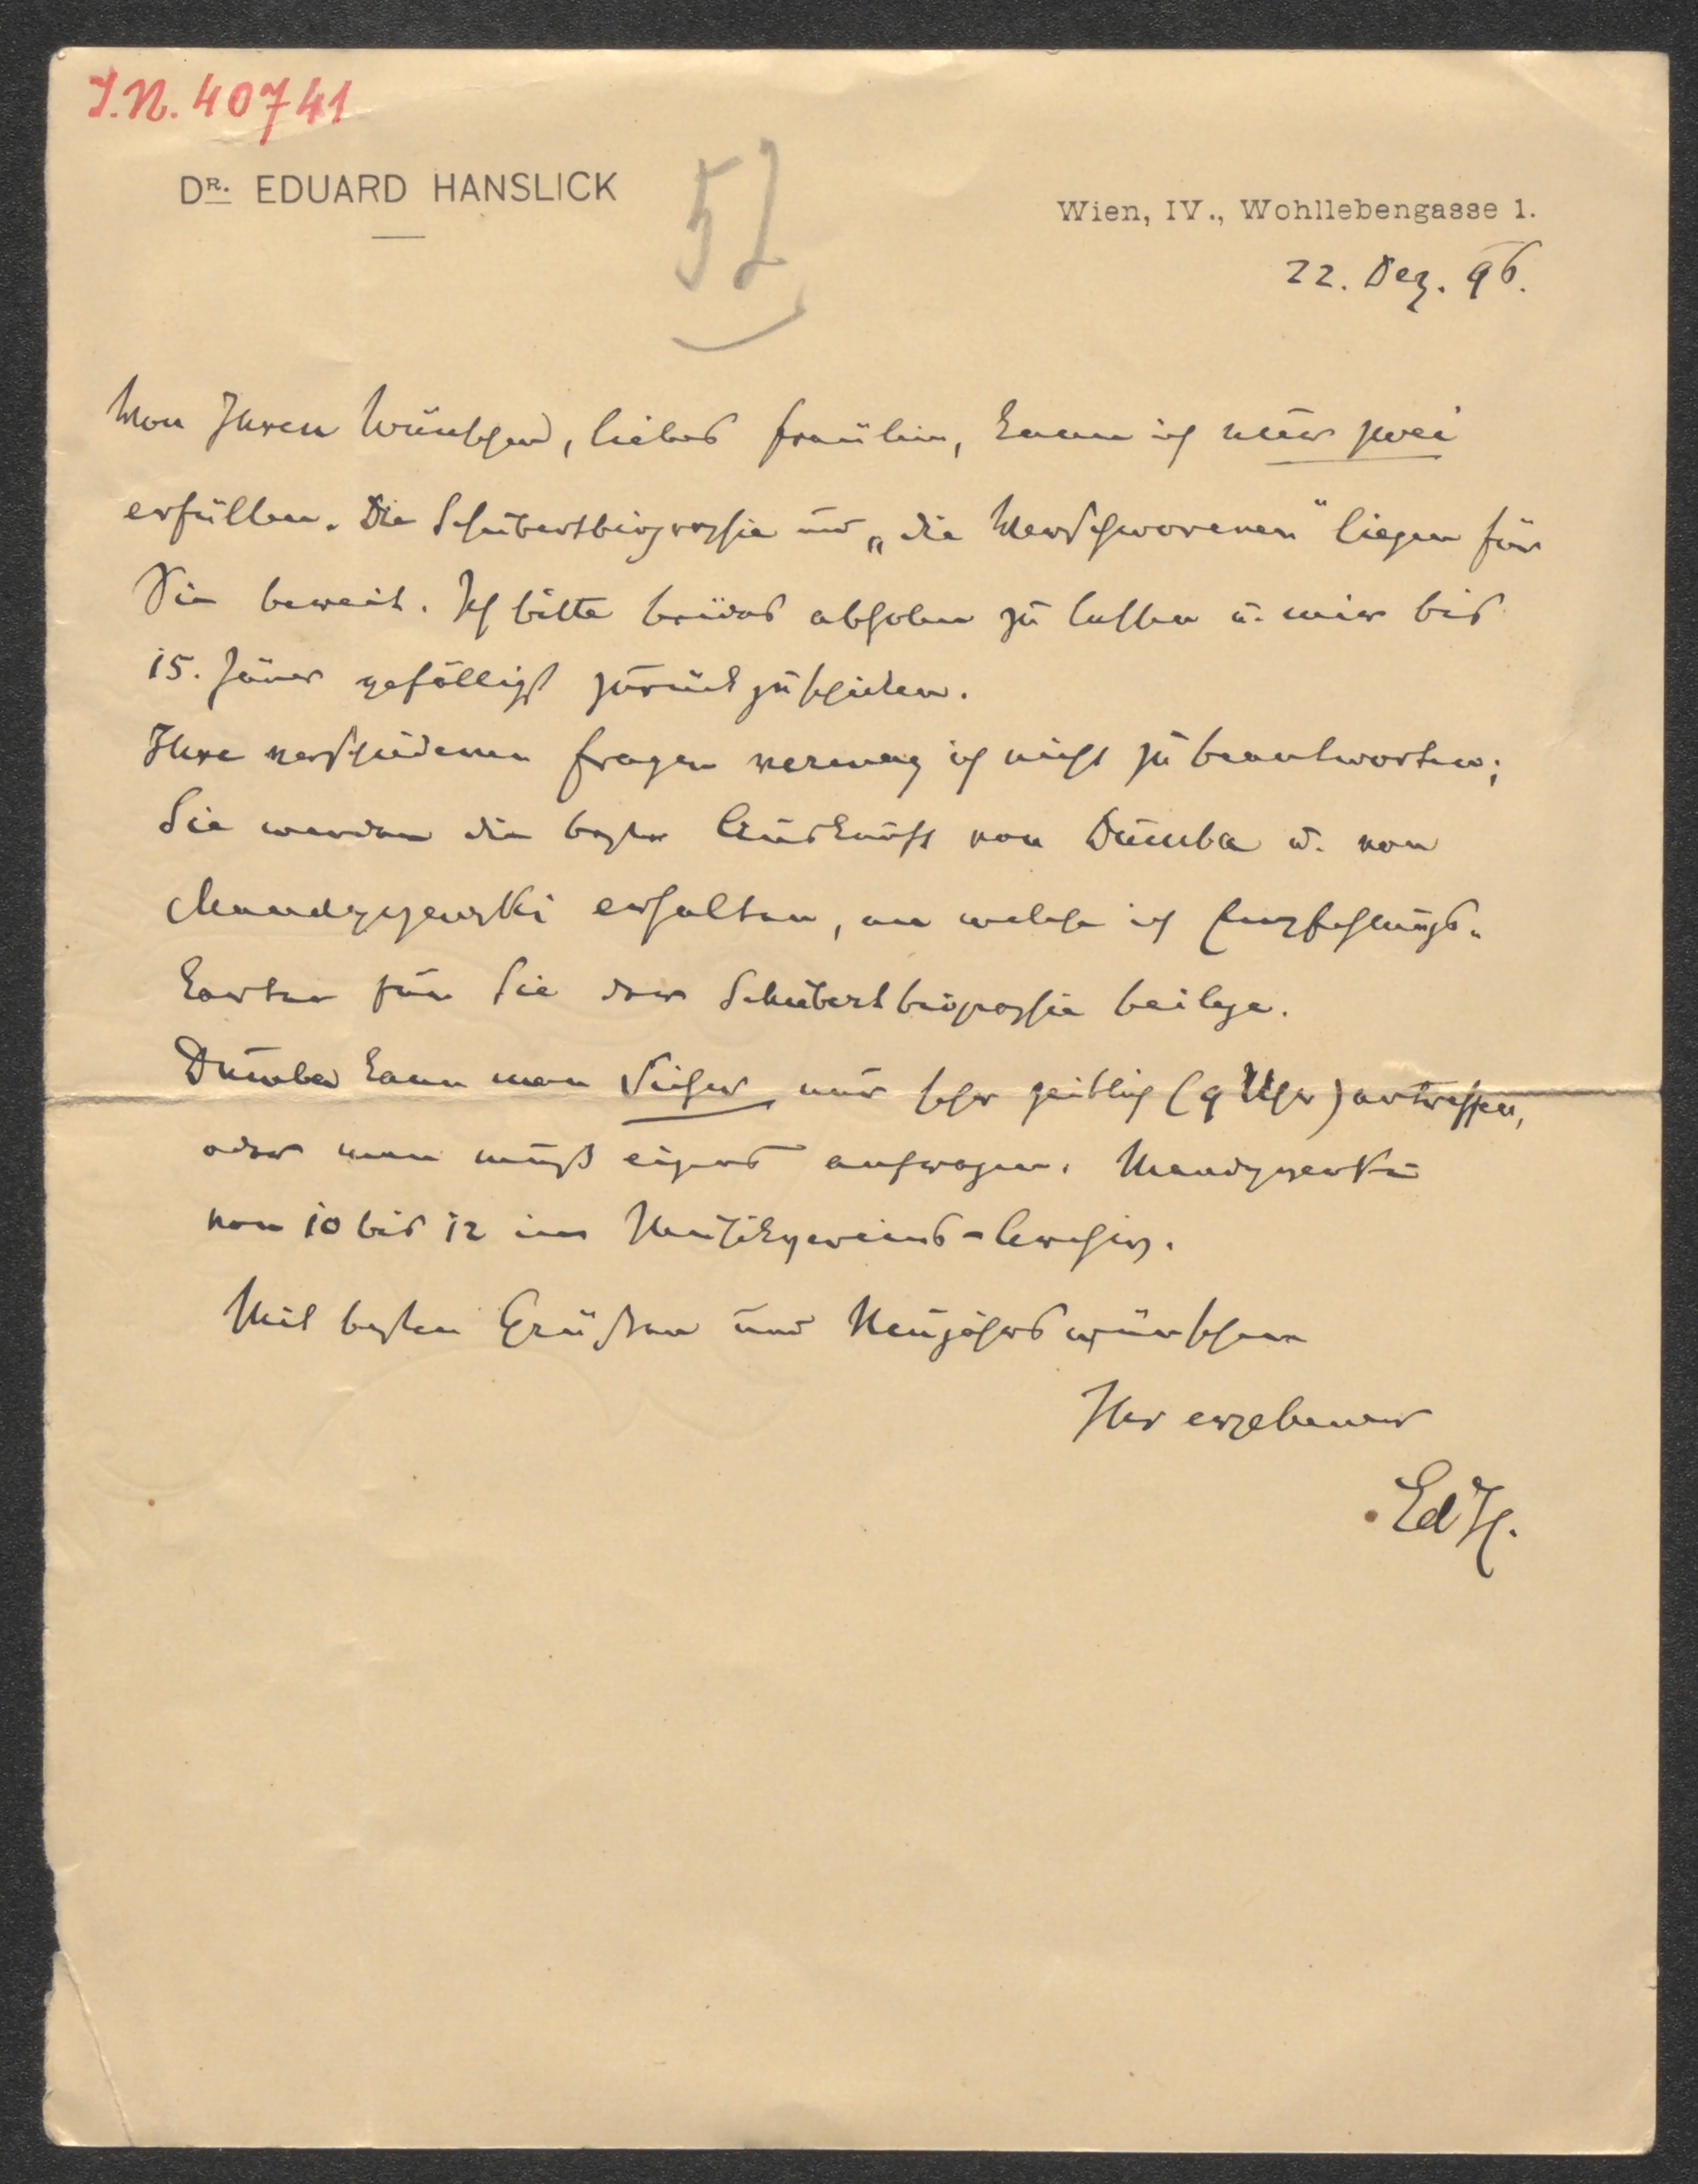 I.N. 40741
DR. EDUARD HANSLICK
52
Wien, IV., Wohllebengasse 1.
22. Dez. 96.
Von Ihren Wünschen, liebes Fräulein, kann ich nur zwei
erfüllen. Die Schubertbiographie und „die Verschworenen" liegen für
Sie bereit. Ich bitte beides abholen zu lassen u. mir bis
15. Jäner gefälligst zurückzuschicken.
Ihre verschiedenen Fragen vermag ich nicht zu beantworten;
Sie werden die beste Auskunft von Dumba u. von
Mandyczewski erhalten, an welche ich Empfehlungs-
karten für Sie der Schubertbiographie beilege.
Dumba kann man sicher nur sehr zeitlich (9 Uhr) antreffen,
oder man muß eigens anfragen. Mandyczewski
von 10 bis 12 im Musikvereins-Archiv.
Mit besten Grüßen und Neujahrswünschen
Ihr ergebener
Ed H.